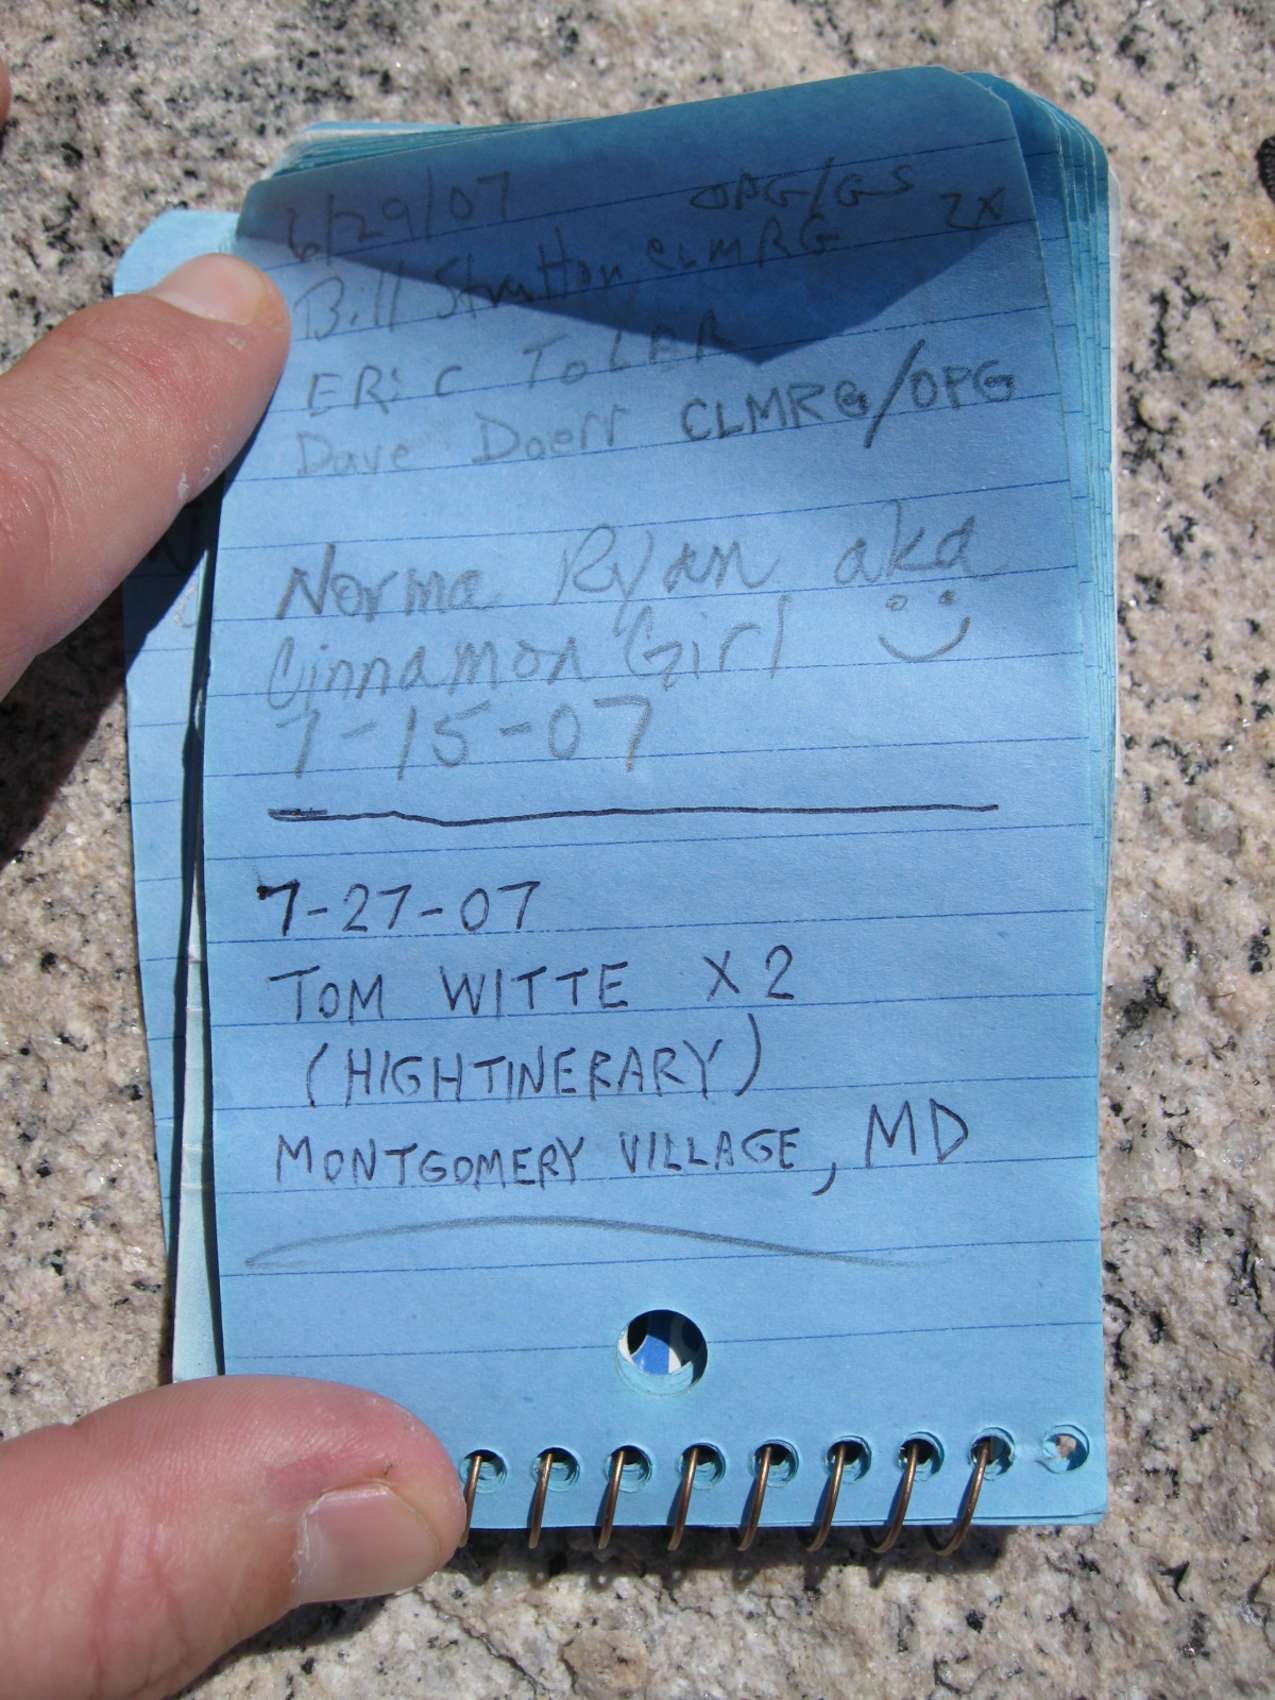 6/29/07 OPG/GS 2X
Bill Stratton CLMRG
ERic ToLER
Dave Doerr CLMRG/OPG
Norma Ryan aka
Cinnamon Girl
7-15-07
7-27-07
TOM WITTE X2
(HIGHTINERARY)
MONTGOMERY VILLAGE, MD